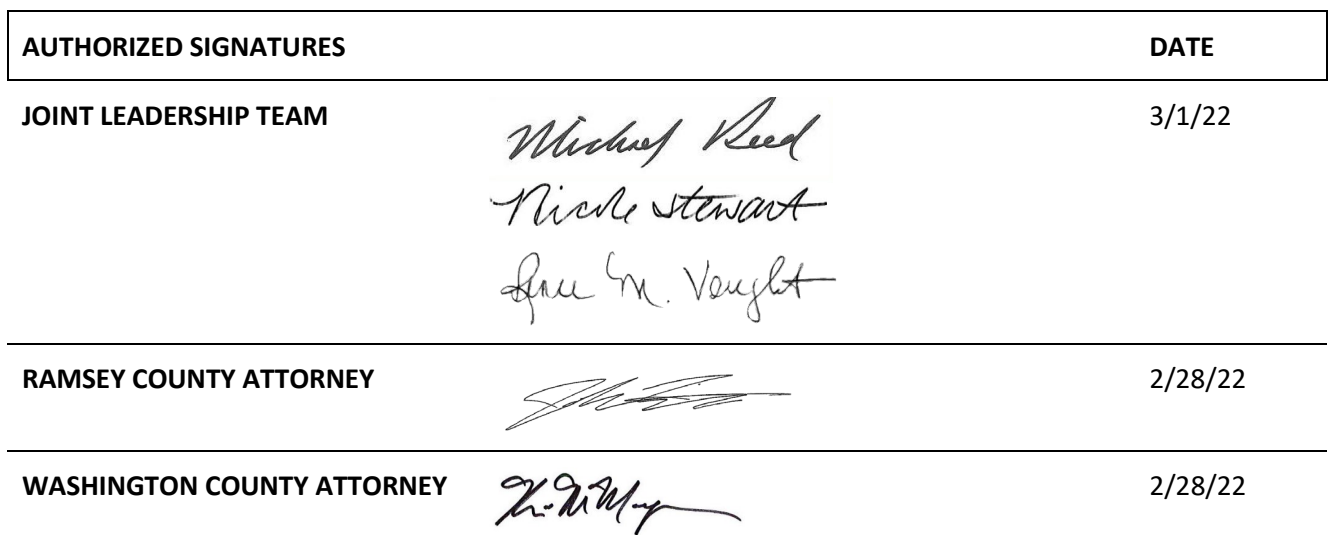 AUTHORIZED SIGNATURES DATE
JOINT LEADERSHIP TEAM Michael Reed 3/1/22
Nicole Stewart
M. Vaught
RAMSEY COUNTY ATTORNEY 2/28/22
WASHINGTON COUNTY ATTORNEY 2/28/22